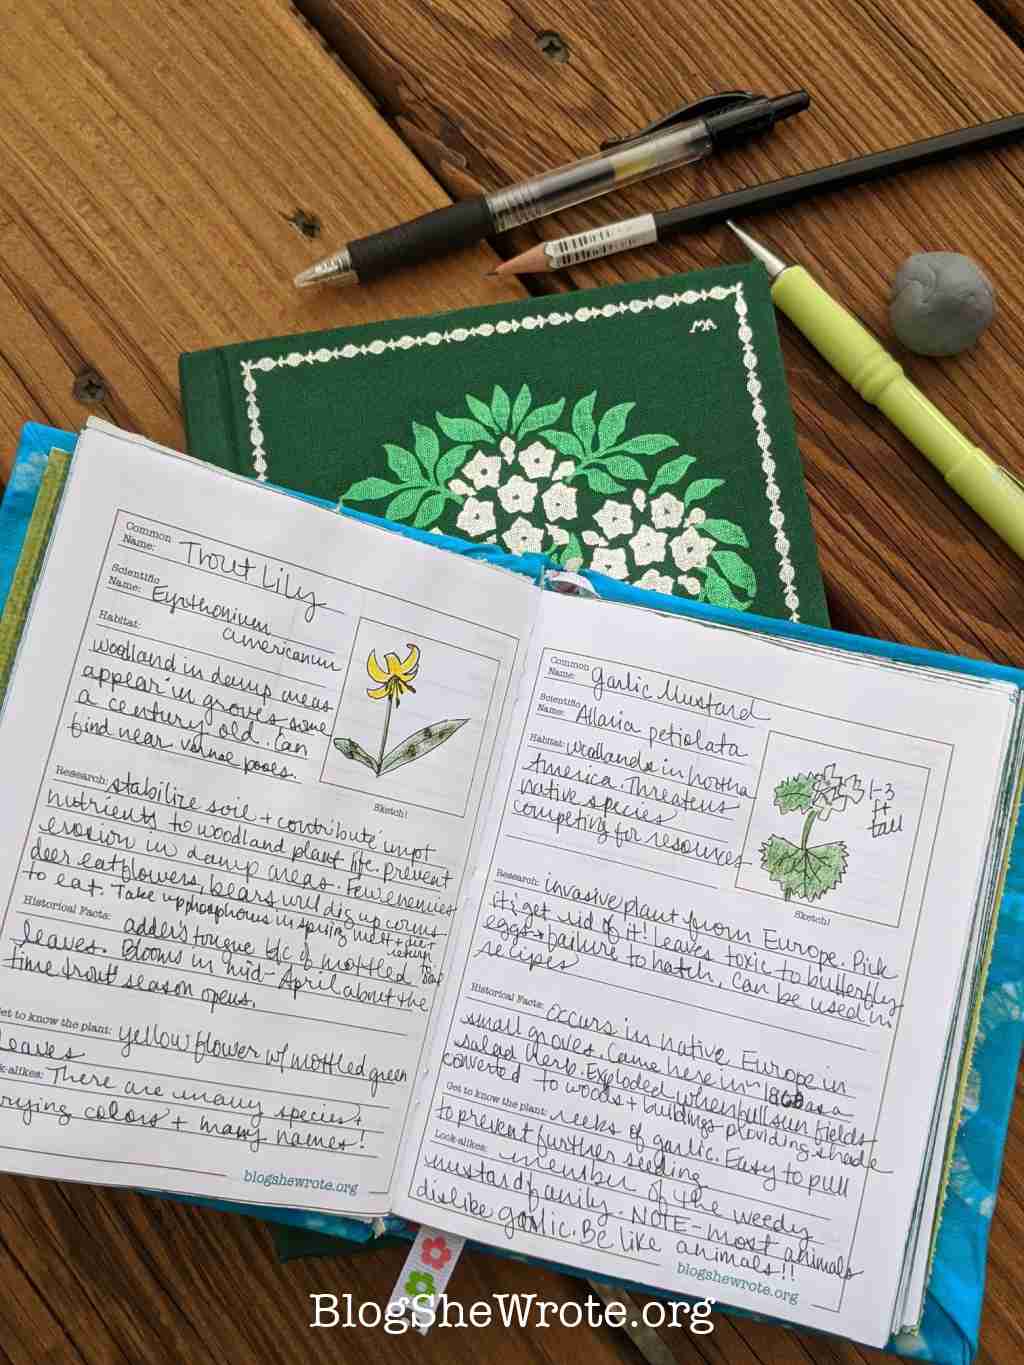 MA
Common Name: Trout Lily
Scientific Name: Eyrthonium
americanum
Habitat:
woodland in damp areas
appear in groves some
a century old. Can
find near vernal pools.
Sketch!
Research: stabilize soil + contribute impt
nutrients to woodland plant life. Prevent
erosion in damp areas. Few enemies
deer eat flowers, bears will dig up corms
to eat. Take up phosphorus in spring melt +
return
Historical Facts: adder's tongue b/c of mottled
leaves. Blooms in mid-April about the
time trout season opens.
Get to know the plant: yellow flower w/ mottled green
leaves
k-alikes: There are many species +
rying colors + many names!
blogshewrote.org
Common Name: Garlic Mustard
Scientific Name: Allaria petiolata
Habitat: Woodlands in north
America. Threatens
native species
competing for resources
1-3
ft
tall
Sketch!
Research: invasive plant from Europe. Pick
it; get rid of it! Leaves toxic to butterfly
eggs → failure to hatch, Can be used in
recipes
Historical Facts: Occurs in native Europe in
small groves. Came here in 1868 as a
salad herb. Exploded when full sun fields
converted to woods + buildings providing shade
Get to know the plant: reeks of garlic. Easy to pull
to prevent further seeding
Look-alikes: member of the weedy
mustard family. NOTE - most animals
dislike garlic. Be like animals!!
blogshewrote.org
BlogSheWrote.org